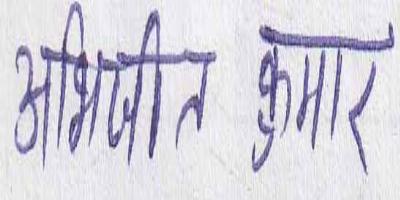 अभिजीत कुमार